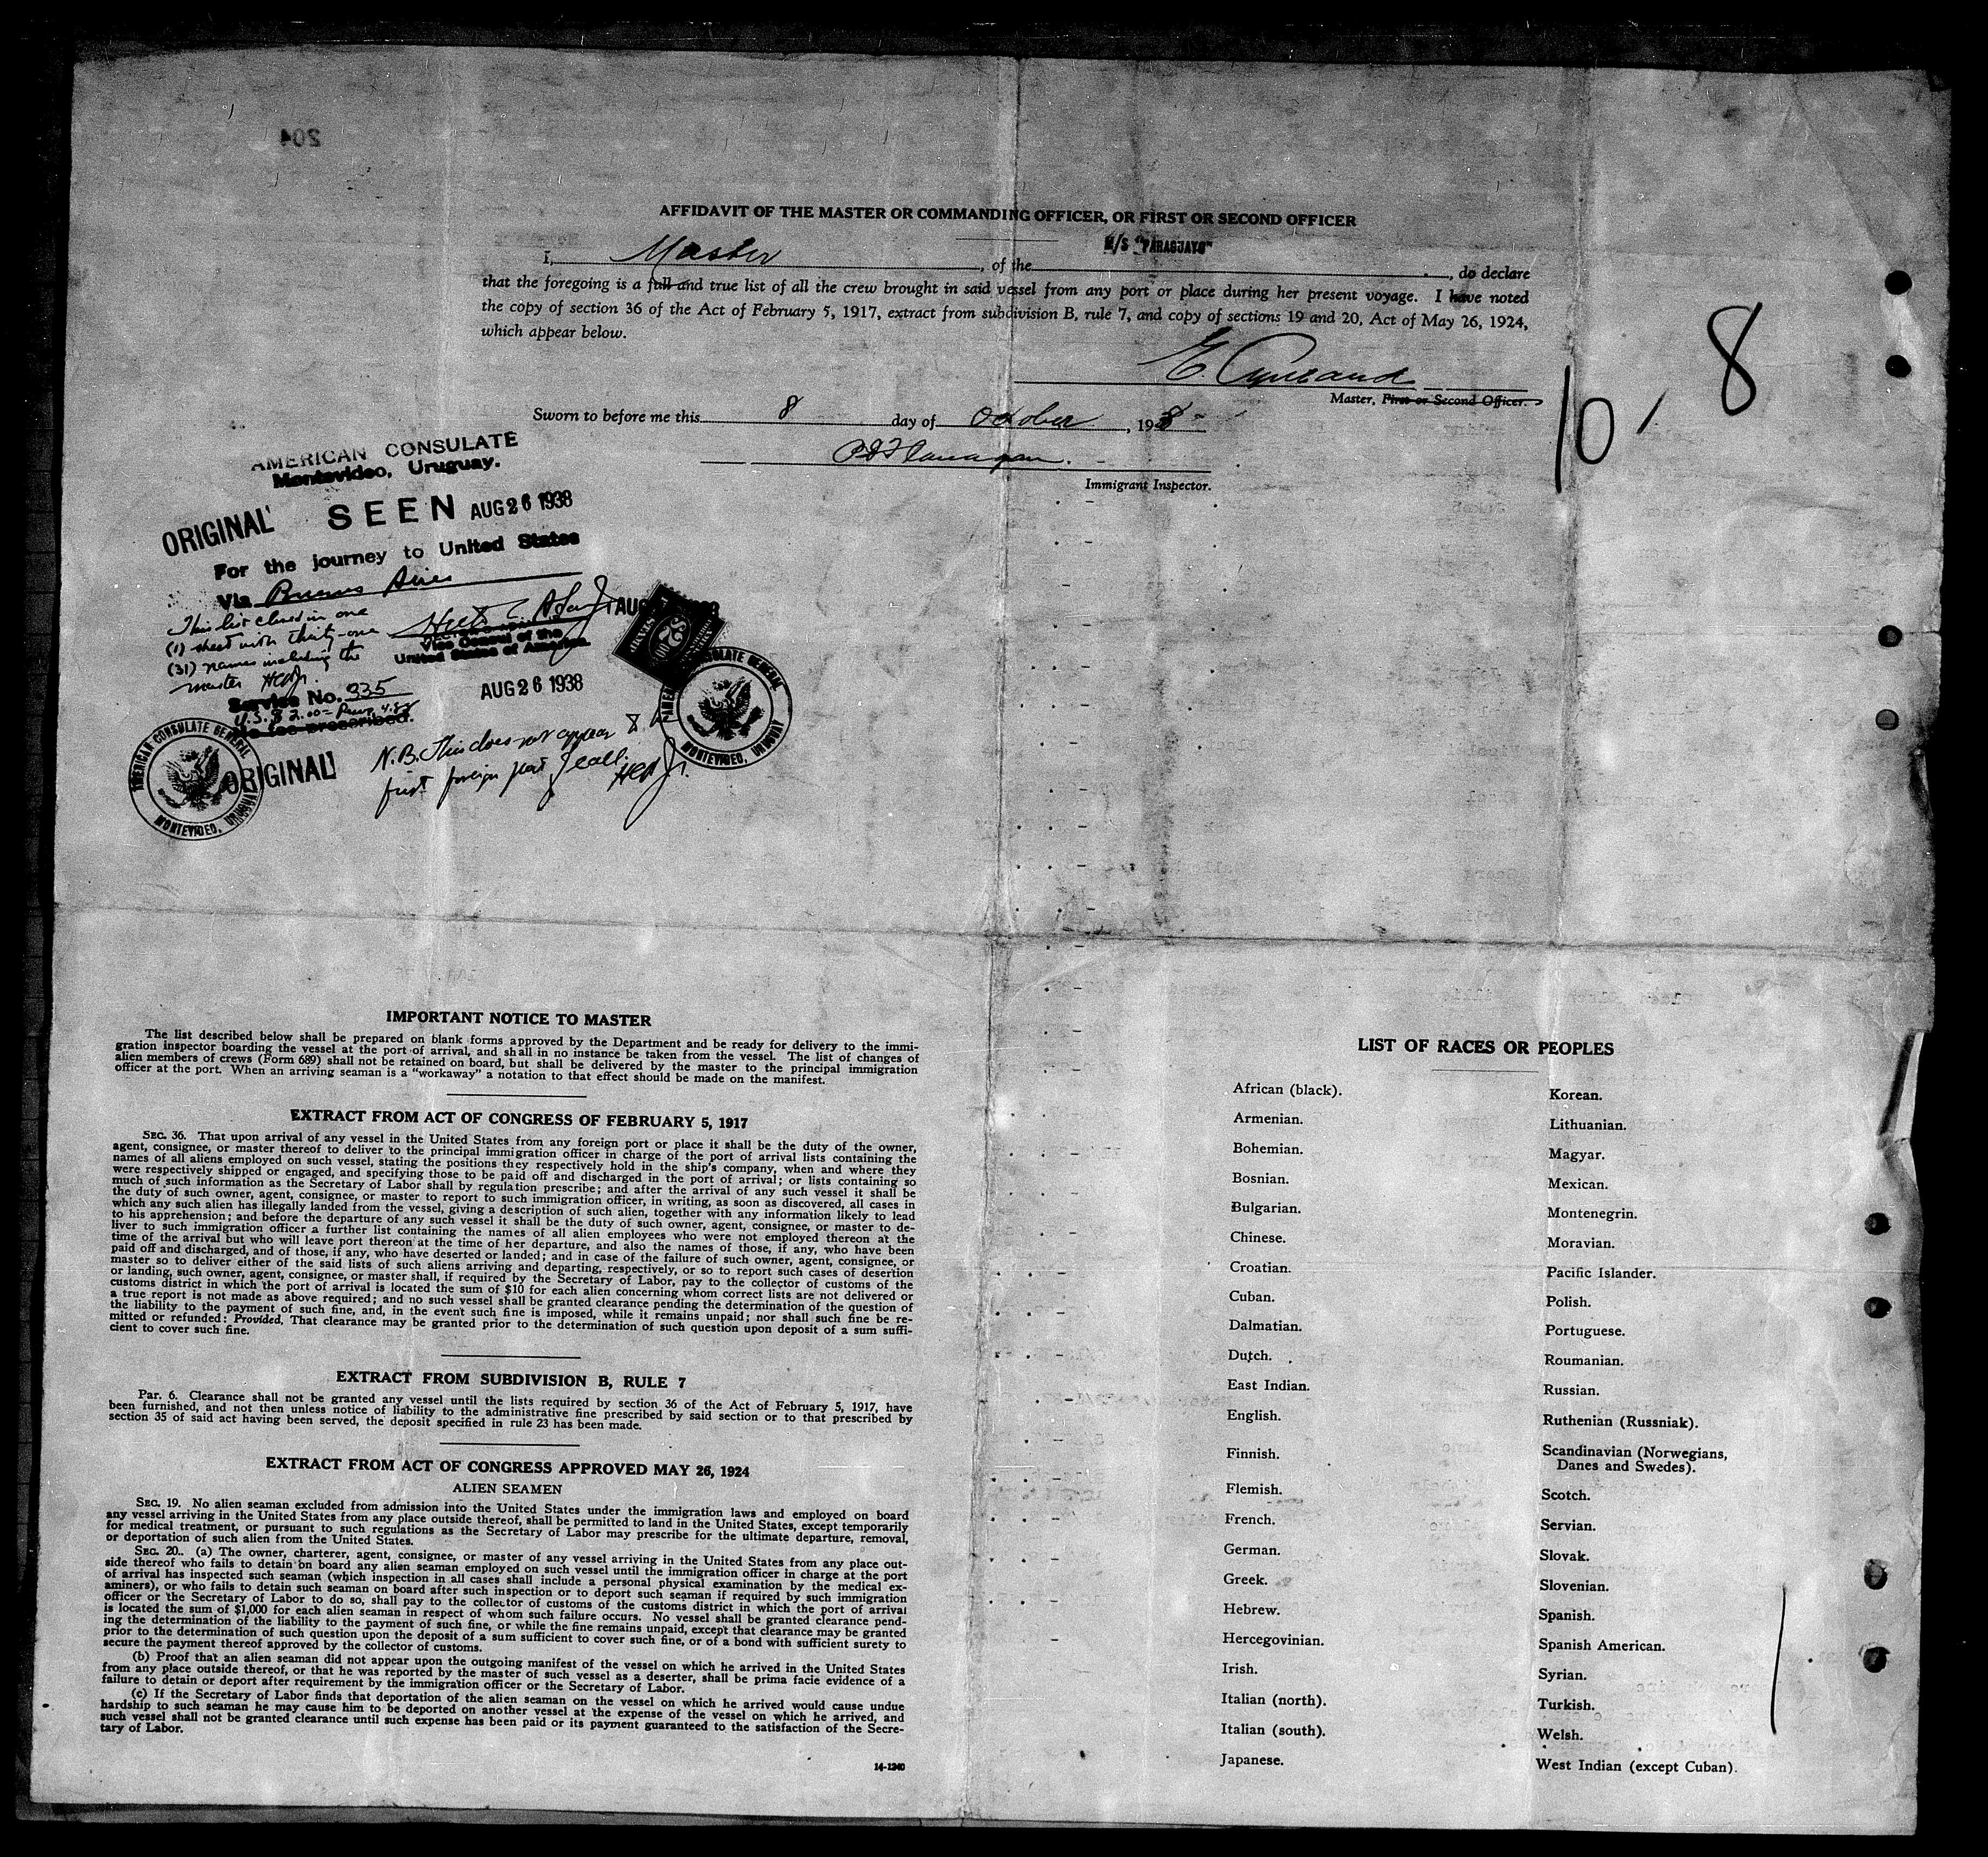 204
AFFIDAVIT OF THE MASTER OR COMMANDING OFFICER, OR FIRST OR SECOND OFFICER
I, Master, of the M/S "PARAGUAYO", do declare
that the foregoing is a full and true list of all the crew brought in said vessel from any port or place during her present voyage. I have noted
the copy of section 36 of the Act of February 5, 1917, extract from subdivision B, rule 7, and copy of sections 19 and 20, Act of May 26, 1924,
which appear below.
E.
Master, First or Second Officer.
Sworn to before me this 8 day of October, 1938
Immigrant Inspector.
10, 8
AMERICAN CONSULATE
Montevideo, Uruguay.
ORIGINAL SEEN AUG 26 1938
For the journey to United States
Via Buenos Aires
This list closed in one
(1) sheet with thirty-one
(31) names including the
master
Vice Consul of the
United States of America.
AUG 26 1938
Service No. 335
U.S. $ 2.00 =
No fee prescribed.
AMERICAN CONSULATE GENERAL
MONTEVIDEO, URUGUAY
ORIGINAL
AMERICAN CONSULATE GENERAL
MONTEVIDEO, URUGUAY
N.B. This does not appear
first foreign port of call.
IMPORTANT NOTICE TO MASTER
The list described below shall be prepared on blank forms approved by the Department and be ready for delivery to the immi-
gration inspector boarding the vessel at the port of arrival, and shall in no instance be taken from the vessel. The list of changes of
alien members of crews (Form 689) shall not be retained on board, but shall be delivered by the master to the principal immigration
officer at the port. When an arriving seaman is a "workaway" a notation to that effect should be made on the manifest.
EXTRACT FROM ACT OF CONGRESS OF FEBRUARY 5, 1917
SEC. 36. That upon arrival of any vessel in the United States from any foreign port or place it shall be the duty of the owner,
agent, consignee, or master thereof to deliver to the principal immigration officer in charge of the port of arrival lists containing the
names of all aliens employed on such vessel, stating the positions they respectively hold in the ship's company, when and where they
were respectively shipped or engaged, and specifying those to be paid off and discharged in the port of arrival; or lists containing so
much of such information as the Secretary of Labor shall by regulation prescribe; and after the arrival of any such vessel it shall be
the duty of such owner, agent, consignee, or master to report to such immigration officer, in writing, as soon as discovered, all cases in
which any such alien has illegally landed from the vessel, giving a description of such alien, together with any information likely to lead
to his apprehension; and before the departure of any such vessel it shall be the duty of such owner, agent, consignee, or master to de-
liver to such immigration officer a further list containing the names of all alien employees who were not employed thereon at the
time of the arrival but who will leave port thereon at the time of her departure, and also the names of those, if any, who have been
paid off and discharged, and of those, if any, who have deserted or landed; and in case of the failure of such owner, agent, consignee, or
master so to deliver either of the said lists of such aliens arriving and departing, respectively, or so to report such cases of desertion
or landing, such owner, agent, consignee, or master shall, if required by the Secretary of Labor, pay to the collector of customs of the
customs district in which the port of arrival is located the sum of $10 for each alien concerning whom correct lists are not delivered or
a true report is not made as above required; and no such vessel shall be granted clearance pending the determination of the question of
the liability to the payment of such fine, and, in the event such fine is imposed, while it remains unpaid; nor shall such fine be re-
mitted or refunded: Provided, That clearance may be granted prior to the determination of such question upon deposit of a sum suffi-
cient to cover such fine.
EXTRACT FROM SUBDIVISION B, RULE 7
Par. 6. Clearance shall not be granted any vessel until the lists required by section 36 of the Act of February 5, 1917, have
been furnished, and not then unless notice of liability to the administrative fine prescribed by said section or to that prescribed by
section 35 of said act having been served, the deposit specified in rule 23 has been made.
EXTRACT FROM ACT OF CONGRESS APPROVED MAY 26, 1924
ALIEN SEAMEN
SEC. 19. No alien seaman excluded from admission into the United States under the immigration laws and employed on board
any vessel arriving in the United States from any place outside thereof, shall be permitted to land in the United States, except temporarily
for medical treatment, or pursuant to such regulations as the Secretary of Labor may prescribe for the ultimate departure, removal,
or deportation of such alien from the United States.
SEC. 20. (a) The owner, charterer, agent, consignee, or master of any vessel arriving in the United States from any place out-
side thereof who fails to detain on board any alien seaman employed on such vessel until the immigration officer in charge at the port
of arrival has inspected such seaman (which inspection in all cases shall include a personal physical examination by the medical ex-
aminers), or who fails to detain such seaman on board after such inspection or to deport such seaman if required by such immigration
officer or the Secretary of Labor to do so, shall pay to the collector of customs of the customs district in which the port of arrival
is located the sum of $1,000 for each alien seaman in respect of whom such failure occurs. No vessel shall be granted clearance pend-
ing the determination of the liability to the payment of such fine, or while the fine remains unpaid, except that clearance may be granted
prior to the determination of such question upon the deposit of a sum sufficient to cover such fine, or of a bond with sufficient surety to
secure the payment thereof approved by the collector of customs.
(b) Proof that an alien seaman did not appear upon the outgoing manifest of the vessel on which he arrived in the United States
from any place outside thereof, or that he was reported by the master of such vessel as a deserter, shall be prima facie evidence of a
failure to detain or deport after requirement by the immigration officer or the Secretary of Labor.
(c) If the Secretary of Labor finds that deportation of the alien seaman on the vessel on which he arrived would cause undue
hardship to such seaman he may cause him to be deported on another vessel at the expense of the vessel on which he arrived, and
such vessel shall not be granted clearance until such expense has been paid or its payment guaranteed to the satisfaction of the Secre-
tary of Labor.
14-1240
LIST OF RACES OR PEOPLES
African (black).
Armenian.
Bohemian.
Bosnian.
Bulgarian.
Chinese.
Croatian.
Cuban.
Dalmatian.
Dutch.
East Indian.
English.
Finnish.
Flemish.
French.
German.
Greek.
Hebrew.
Hercegovinian.
Irish.
Italian (north).
Italian (south).
Japanese.
Korean.
Lithuanian.
Magyar.
Mexican.
Montenegrin.
Moravian.
Pacific Islander.
Polish.
Portuguese.
Roumanian.
Russian.
Ruthenian (Russniak).
Scandinavian (Norwegians,
Danes and Swedes).
Scotch.
Servian.
Slovak.
Slovenian.
Spanish.
Spanish American.
Syrian.
Turkish.
Welsh.
West Indian (except Cuban).